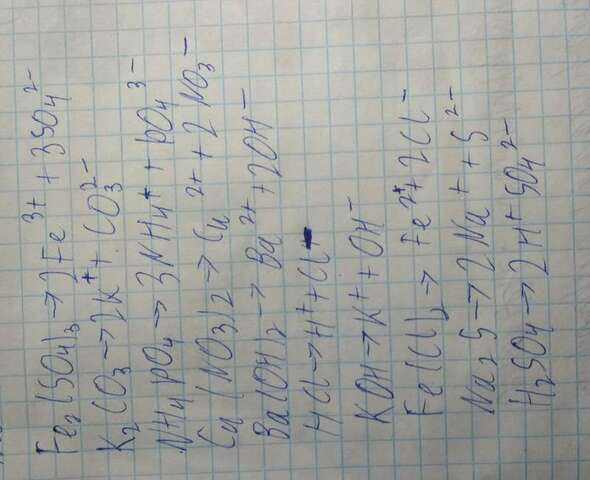 Fe₂(SO₄)₃ → 2Fe³⁺ + 3SO₄²⁻
K₂CO₃ → 2K⁺ + CO₃²⁻
NH₄PO₄ → 3NH₄⁺ + PO₄³⁻
Cu(NO₃)₂ → Cu²⁺ + 2NO₃⁻
Ba(OH)₂ → Ba²⁺ + 2OH⁻
HCl → H⁺ + Cl⁻
KOH → K⁺ + OH⁻
Fe(Cl)₂ → Fe²⁺ + 2Cl⁻
Na₂S → 2Na⁺ + S²⁻
H₂SO₄ → 2H⁺ SO₄²⁻